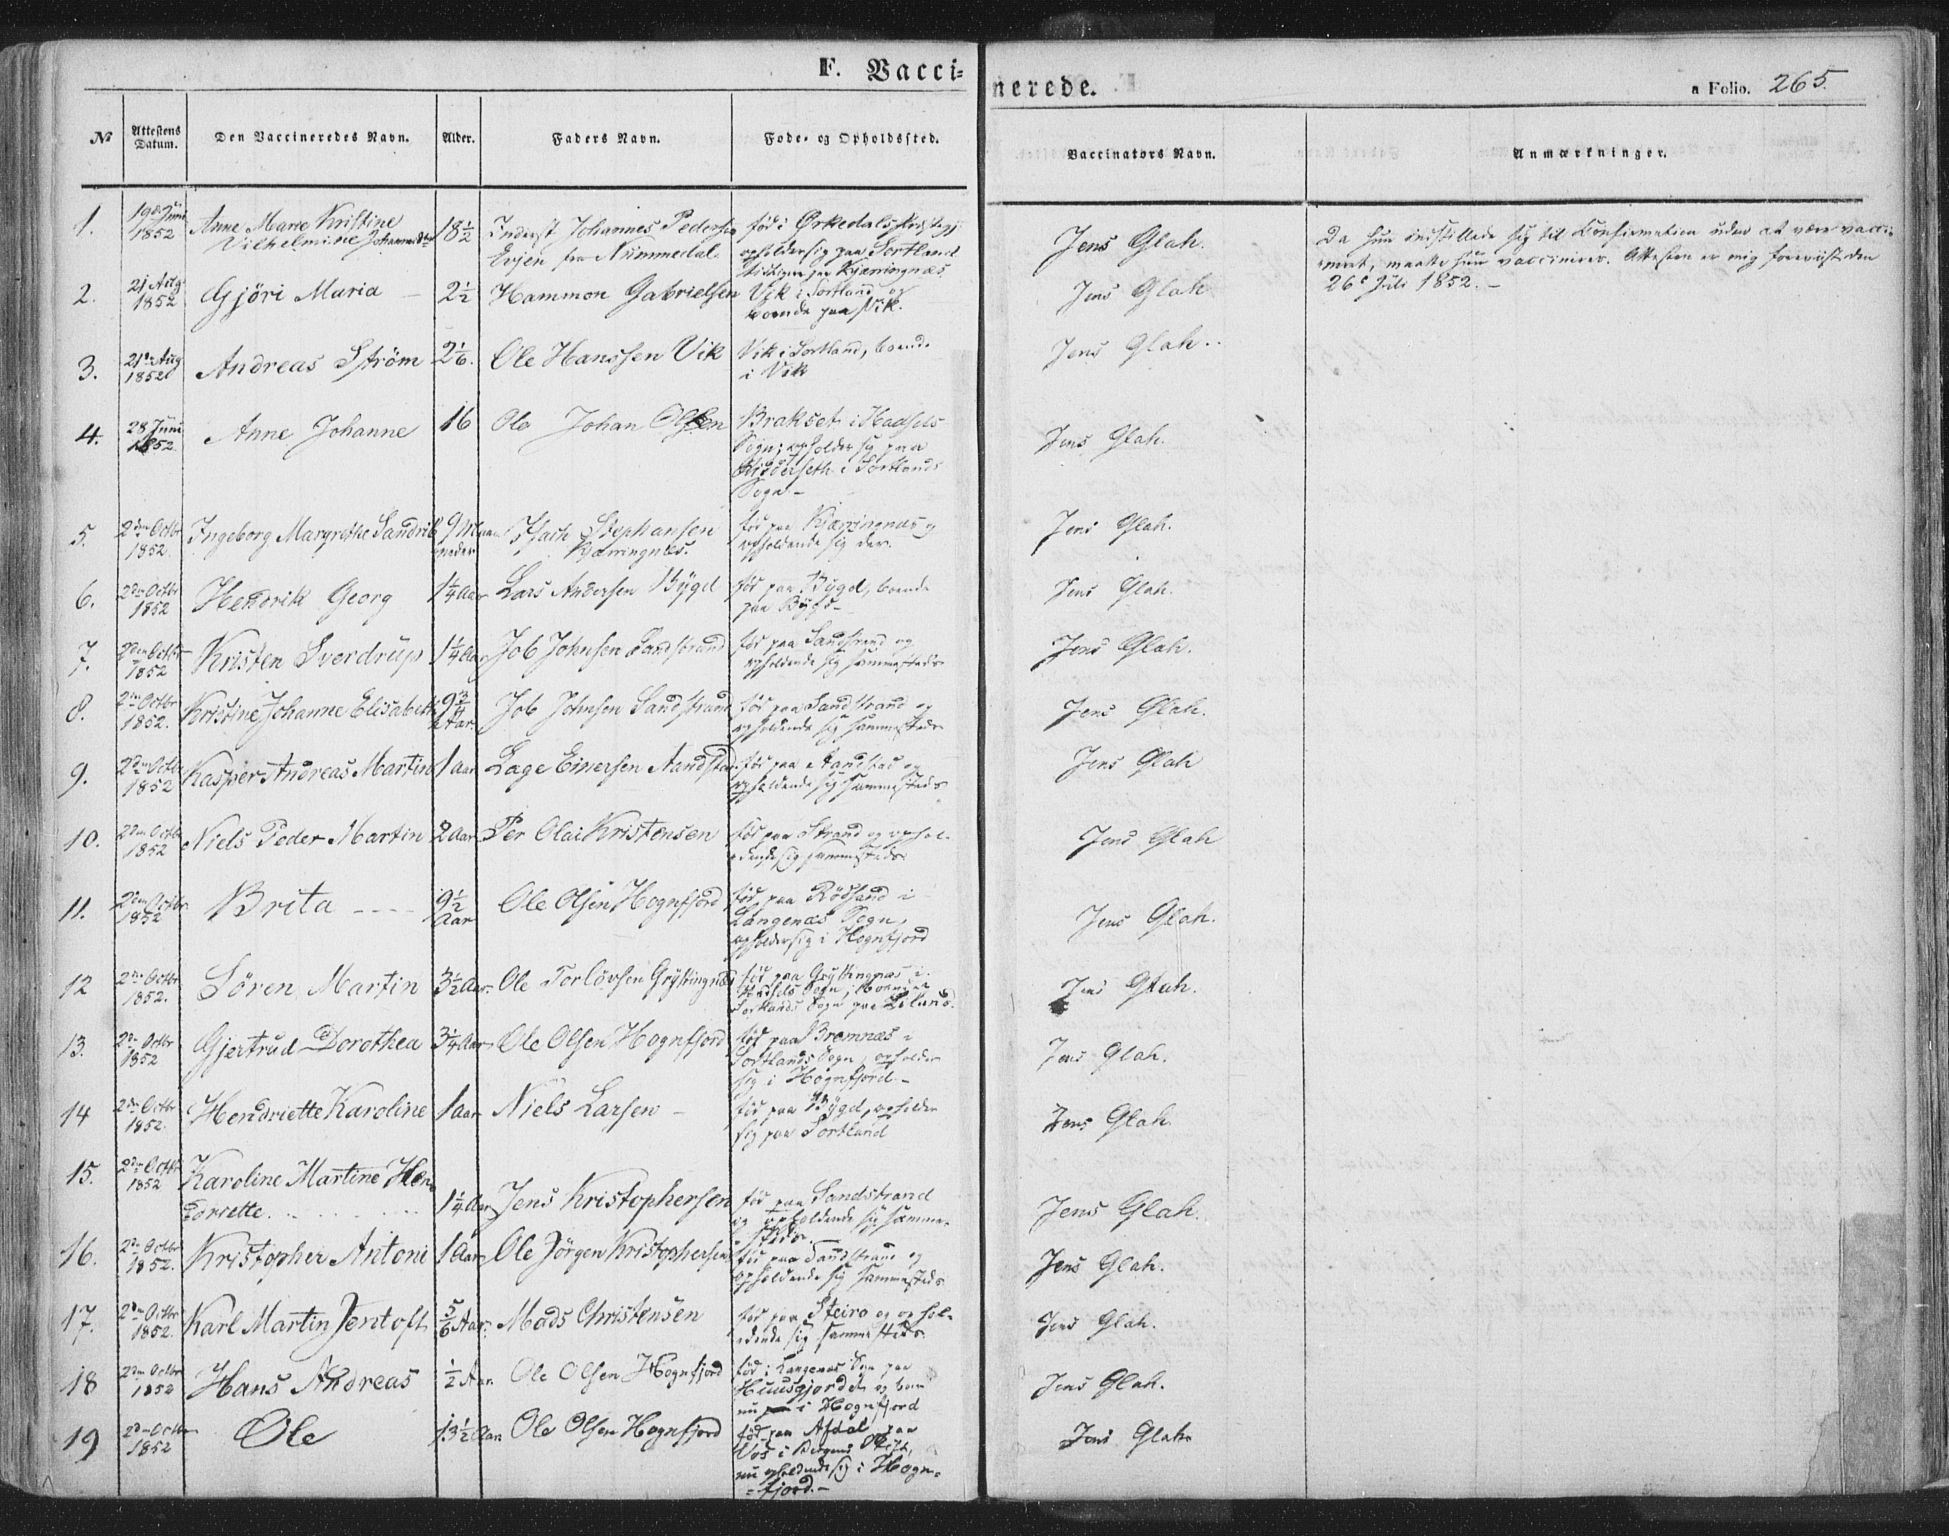 F. Vacci=
nerede.
a Folio. 265.
№ Attestens Datum. Den Vaccineredes Navn. Alder. Faders Navn. Føde- og Opholdssted. Vaccinators Navn. Anmærkninger.
1. 19de Juni Anne Marie Kristine 18½ Inderst Johannes Pedersen fød i Ørkedals Præstegj Jens Glah. Da hun indstillede sig til Confirmation uden at være vacci-
1852 Vilhelmine Johannesd Evjen fra Nummedal opholder sig paa Sortland neret, maatte hun vaccineres. Attesten er mig foreviist den
Kjærringnæs 26e Juli 1852. -
2. 21 Aug 1852 Gjöri Maria - 2½ Hammon Gabrielsen Vik i Sortland og Jens Glah
boende paa Vik.
3. 21de Aug 1852 Andreas Ström 2 1/6. Ole Hanssen Vik Vik i Sortland, boende Jens Glah..
i Vik
4. 28 Juni 1852 Anne Johanne 16 Ole Johan Olsen Brakset i Hadsels Jens Glah.
Sogn; opholder sig paa
i Sortlands
Sogn -
5. 2den Octbr 1852. Ingeborg Margrethe Sandvik 9 Maa- Isach Stephansen fød paa Kjærringnæs og Jens Glah.
neder Kjærringnæs. opholdende sig der.
6. 2den Octbr 1852 Hendrik Georg 1¼ Aar Lars Andersen Bÿgd fød paa Bÿgd, boende Jens Glah.
paa Bÿgd -
7. 2den Octbr 1852 Kristen Sverdrup 1¼ Aar Job Johnsen Sandstrand fød paa Sandstrand og Jens Glah.
opholdende sig sammesteds
8. 2den Octbr 1852. Kristine Johanne Elisabeth 9¾ Aar. Job Johnsen Sandstrand fød paa Sandstrand og Jens Glah.
opholdende sig sammesteds
9. 2den Octbr 1852 Kasper Andreas Martin 1 aar Lage Einersen Aandstad fød paa Aandstad og Jens Glah
opholdende sig sammesteds
10. 2den Octbr 1852 Niels Peder Martin 2 Aar Per Olai Kristensen fød paa Strand og ophol- Jens Glah
dende sig sammesteds.
11. 2den Octbr 1852 Brita - - - 9½ Aar Ole Olsen Hognfjord fød paa Rödsand i Jens Glah.
Langenæs Sogn,
opholder sig i Hognfjord
12 2den Octbr 1852. Sören Martin 3½ Aar. Ole Torlövsen Grÿttingnæs fød paa Grÿttingnæs i Jens Glah.
Hadsels Sogn, boende i
Sortlands Sogn paa Liland.
13. 2den Octbr 1852 Gjertrud Dorothea 3¼ Aar Ole Olsen Hognfjord fød paa Bremnæs i Jens Glah.
Sortlands Sogn, opholder
sig i Hognfjord. -
14 2den Octbr 1852. Hendriette Karoline 1 Aar Niels Larsen - fød paa Bÿgd, opholder Jens Glah.
sig paa Sortland
15. 2den Octbr 1852 Karoline Martine Hen-
driette. . . . 1¼ Aar Jens Kristophersen fød paa Sandstrand Jens Glah.
og opholdende sig samme-
steds. -
16. 2den Octbr 1852. Kristopher Antoni 1 Aar Ole Jörgen Kristophersen fød paa Sandstrand og Jens Glah.
opholdende sig sammesteds
17. 2den Octbr 1852. Karl Martin Jentoft 5/6 Aar. Mads Christensen fød paa Steiro og ophol- Jens Glah.
dende sig sammesteds.
18 2den Octbr 1852 Hans Andreas ½ Aar Ole Olsen Hognfjord fød i Langenæs Sogn paa Jens Glah.
Huusgjordet og boer
nu i Hognfjord
19 2den Octbr 1852 Ole 13½ Aar Ole Olsen Hognfjord fød paa Afdal paa Jens Glah
Vos i Bergens Stift,
nu opholdende sig i Hogn-
=fjord. -